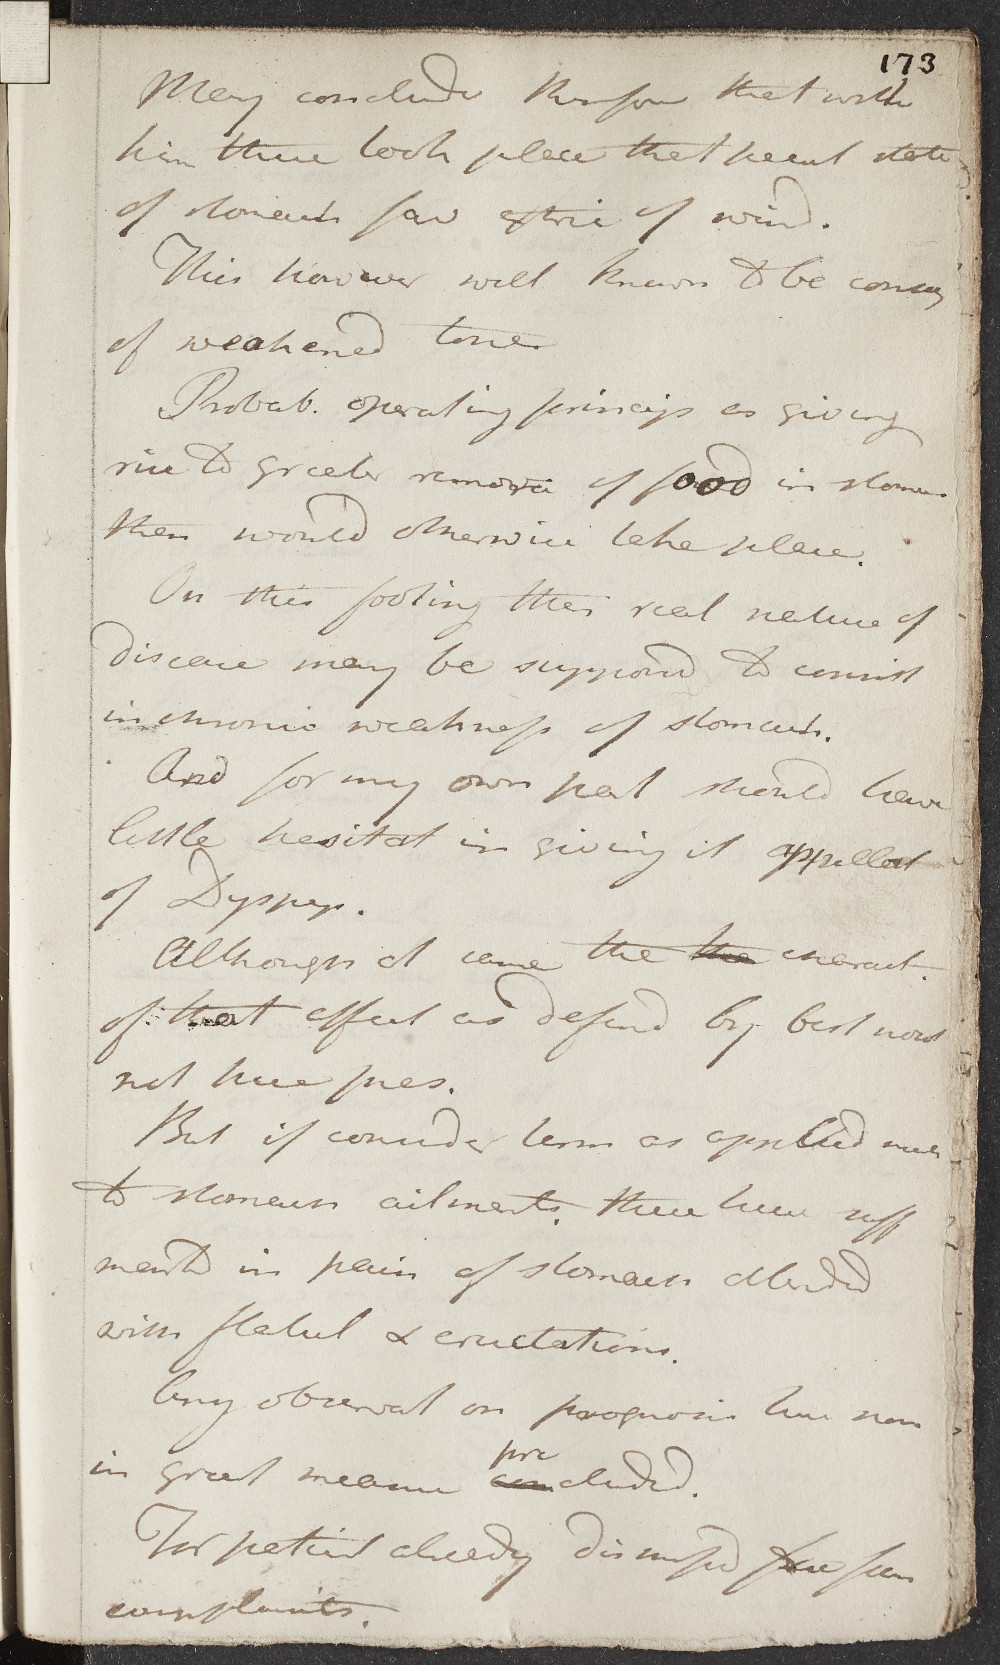 173
May conclude therefore that with
him there took place that pecul state
of stomach fav of wind.
This however well known to be conseq
of weakened tone
Probab. operating princip as giving
rise to greater of food in stomac
than would otherwise take place.
On this footing then real nature of
disease may be supposd to consist
in chronic weakness of stomach.
And for my own part should have
little hesitat in giving it appellat
of Dyspep.
Although at same the the charact.
of that affect as defind by best nosol
not here pres.
But if consider term as applied mer
to stomach ailments. there here suff
markd in pain of stomach attended
with flatul & eructations.
Any observat on prognosis here now
in great measure pre concluded.
For patient already dismissd free from
complaints.